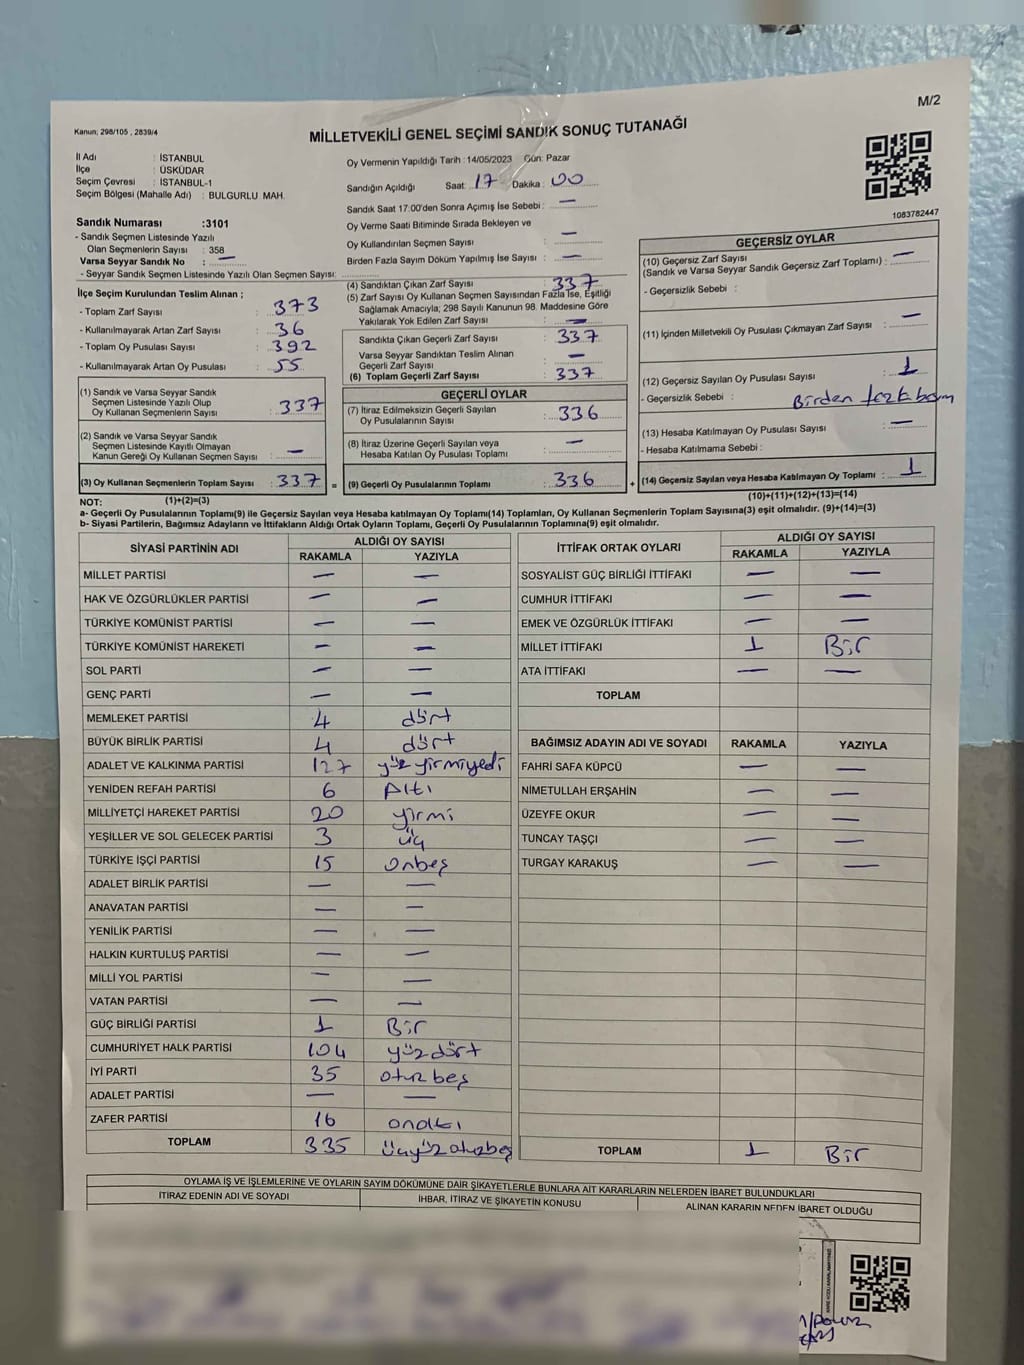 M/2
Kanun; 298/105 , 2839/4
MİLLETVEKİLİ GENEL SEÇİMİ SANDIK SONUÇ TUTANAĞI
İl Adı : İSTANBUL
İlçe : ÜSKÜDAR
Seçim Çevresi : İSTANBUL-1
Seçim Bölgesi (Mahalle Adı) : BULGURLU MAH.
Oy Vermenin Yapıldığı Tarih : 14/05/2023 Gün: Pazar
Sandığın Açıldığı Saat: 17 Dakika : 00
Sandık Saat 17:00'den Sonra Açımış İse Sebebi : —
Oy Verme Saati Bitiminde Sırada Bekleyen ve
Oy Kullandırılan Seçmen Sayısı : —
Birden Fazla Sayım Döküm Yapılmış İse Sayısı : —
1083782447
Sandık Numarası :3101
- Sandık Seçmen Listesinde Yazılı
Olan Seçmenlerin Sayısı : 358
Varsa Seyyar Sandık No : —
- Seyyar Sandık Seçmen Listesinde Yazılı Olan Seçmen Sayısı:
İlçe Seçim Kurulundan Teslim Alınan ;
- Toplam Zarf Sayısı : 373
- Kullanılmayarak Artan Zarf Sayısı : 36
- Toplam Oy Pusulası Sayısı : 392
- Kullanılmayarak Artan Oy Pusulası : 55
(1) Sandık ve Varsa Seyyar Sandık
Seçmen Listesinde Yazılı Olup
Oy Kullanan Seçmenlerin Sayısı : 337
(2) Sandık ve Varsa Seyyar Sandık
Seçmen Listesinde Kayıtlı Olmayan
Kanun Gereği Oy Kullanan Seçmen Sayısı : —
(3) Oy Kullanan Seçmenlerin Toplam Sayısı : 337 =
(1)+(2)=(3)
(4) Sandıktan Çıkan Zarf Sayısı : 337
(5) Zarf Sayısı Oy Kullanan Seçmen Sayısından Fazla İse, Eşitliği
Sağlamak Amacıyla; 298 Sayılı Kanunun 98. Maddesine Göre
Yakılarak Yok Edilen Zarf Sayısı : —
Sandıkta Çıkan Geçerli Zarf Sayısı : 337
Varsa Seyyar Sandıktan Teslim Alınan
Geçerli Zarf Sayısı : —
(6) Toplam Geçerli Zarf Sayısı : 337
GEÇERLİ OYLAR
(7) İtiraz Edilmeksizin Geçerli Sayılan
Oy Pusulalarının Sayısı : 336
(8) İtiraz Üzerine Geçerli Sayılan veya
Hesaba Katılan Oy Pusulası Toplamı : —
(9) Geçerli Oy Pusulalarının Toplamı : 336 +
GEÇERSİZ OYLAR
(10) Geçersiz Zarf Sayısı
(Sandık ve Varsa Seyyar Sandık Geçersiz Zarf Toplamı) : —
- Geçersizlik Sebebi :
(11) İçinden Milletvekili Oy Pusulası Çıkmayan Zarf Sayısı : —
(12) Geçersiz Sayılan Oy Pusulası Sayısı : 1
- Geçersizlik Sebebi : Birden fazla basım
(13) Hesaba Katılmayan Oy Pusulası Sayısı : —
- Hesaba Katılmama Sebebi :
(14) Geçersiz Sayılan veya Hesaba Katılmayan Oy Toplamı : 1
(10)+(11)+(12)+(13)=(14)
NOT:
a- Geçerli Oy Pusulalarının Toplamı(9) ile Geçersiz Sayılan veya Hesaba Katılmayan Oy Toplamı(14) Toplamları, Oy Kullanan Seçmenlerin Toplam Sayısına(3) eşit olmalıdır. (9)+(14)=(3)
b- Siyasi Partilerin, Bağımsız Adayların ve İttifakların Aldığı Ortak Oyların Toplamı, Geçerli Oy Pusulalarının Toplamına(9) eşit olmalıdır.
SİYASİ PARTİNİN ADI ALDIĞI OY SAYISI
RAKAMLA YAZIYLA
MİLLET PARTİSİ — —
HAK VE ÖZGÜRLÜKLER PARTİSİ — —
TÜRKİYE KOMÜNİST PARTİSİ — —
TÜRKİYE KOMÜNİST HAREKETİ — —
SOL PARTİ — —
GENÇ PARTİ — —
MEMLEKET PARTİSİ 4 dört
BÜYÜK BİRLİK PARTİSİ 4 dört
ADALET VE KALKINMA PARTİSİ 127 yüz yirmiyedi
YENİDEN REFAH PARTİSİ 6 Altı
MİLLİYETÇİ HAREKET PARTİSİ 20 yirmi
YEŞİLLER VE SOL GELECEK PARTİSİ 3 üç
TÜRKİYE İŞÇİ PARTİSİ 15 onbeş
ADALET BİRLİK PARTİSİ — —
ANAVATAN PARTİSİ — —
YENİLİK PARTİSİ — —
HALKIN KURTULUŞ PARTİSİ — —
MİLLİ YOL PARTİSİ — —
VATAN PARTİSİ — —
GÜÇ BİRLİĞİ PARTİSİ 1 Bir
CUMHURİYET HALK PARTİSİ 104 yüzdört
İYİ PARTİ 35 otuz beş
ADALET PARTİSİ — —
ZAFER PARTİSİ 16 onaltı
TOPLAM 335 üçyüz otuzbeş
İTTİFAK ORTAK OYLARI ALDIĞI OY SAYISI
RAKAMLA YAZIYLA
SOSYALİST GÜÇ BİRLİĞİ İTTİFAKI — —
CUMHUR İTTİFAKI — —
EMEK VE ÖZGÜRLÜK İTTİFAKI — —
MİLLET İTTİFAKI 1 Bir
ATA İTTİFAKI — —
TOPLAM
BAĞIMSIZ ADAYIN ADI VE SOYADI RAKAMLA YAZIYLA
FAHRİ SAFA KÜPCÜ — —
NİMETULLAH ERŞAHİN — —
ÜZEYFE OKUR — —
TUNCAY TAŞÇI — —
TURGAY KARAKUŞ — —
TOPLAM 1 Bir
OYLAMA İŞ VE İŞLEMLERİNE VE OYLARIN SAYIM DÖKÜMÜNE DAİR ŞİKAYETLERLE BUNLARA AİT KARARLARIN NELERDEN İBARET BULUNDUKLARI
İTİRAZ EDENİN ADI VE SOYADI İHBAR, İTİRAZ VE ŞİKAYETİN KONUSU ALINAN KARARIN NEDEN İBARET OLDUĞU